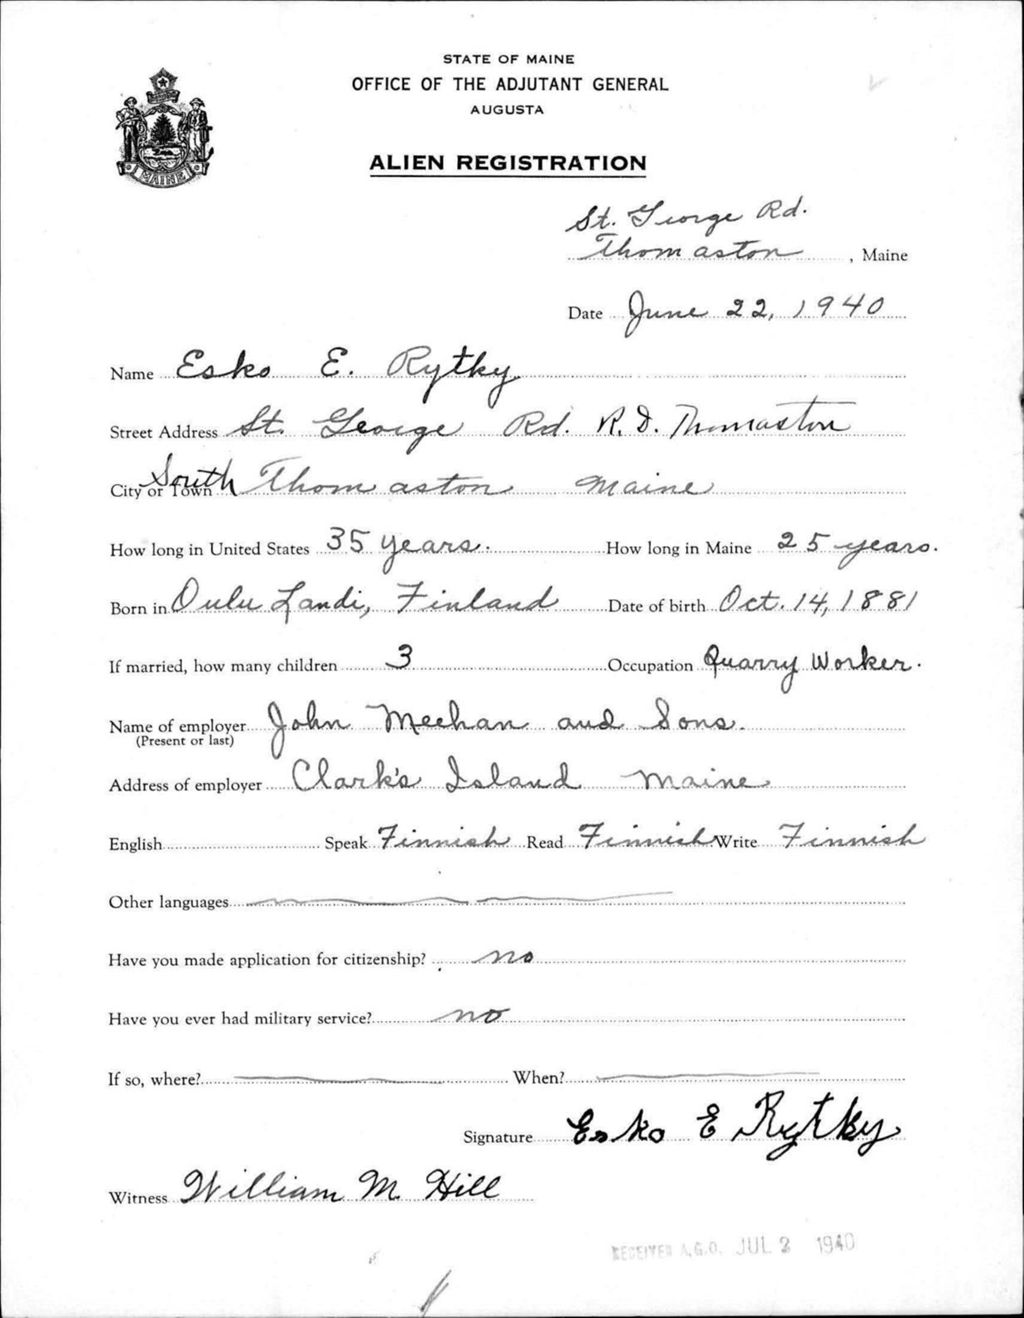 STATE OF MAINE
OFFICE OF THE ADJUTANT GENERAL
AUGUSTA
MAINE
ALIEN REGISTRATION
St. George Rd.
Thomaston, Maine
Date June 22, 1940
Name Esko E. Rytky
Street Address St. George Rd. R. D. Thomaston
City or Town South Thomaston Maine
How long in United States 35 years. How long in Maine 25 years.
Born in Oulu Landi, Finland Date of birth Oct. 14, 1881
If married, how many children 3 Occupation Quarry Worker.
Name of employer John Meehan and Sons.
(Present or last)
Address of employer Clark's Island Maine
English Speak Finnish Read Finnish Write Finnish
Other languages
Have you made application for citizenship? no
Have you ever had military service? no
If so, where? When?
Signature Esko E Rytky
Witness William M. Hill
RECEIVED A.G.O. JUL 2 1940